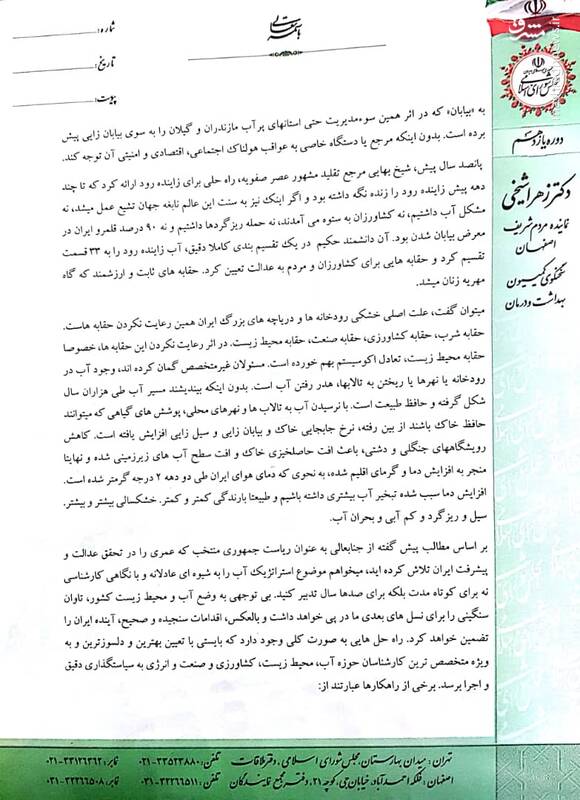 باسمه تعالی
شماره:
تاریخ:
پیوست:
مشرق
مجلس شورای اسلامی
دوره یازدهم
دکتر زهرا شیخی
نماینده مردم شریف
اصفهان
سخنگوی کمیسیون
بهداشت و درمان
به «بیابان» که در اثر همین سوءمدیریت حتی استانهای پر آب مازندران و گیلان را به سوی بیابان زایی پیش
برده است. بدون اینکه مرجع یا دستگاه خاصی به عواقب هولناک اجتماعی، اقتصادی و امنیتی آن توجه کند.
پانصد سال پیش، شیخ بهایی مرجع تقلید مشهور عصر صفویه، راه حلی برای زاینده رود ارائه کرد که تا چند
دهه پیش زاینده رود را زنده نگه داشته بود و اگر اینک نیز به سنت این عالم نابغه جهان تشیع عمل میشد، نه
مشکل آب داشتیم، نه کشاورزان به ستوه می آمدند، نه حمله ریزگردها داشتیم و نه ۹۰ درصد قلمرو ایران در
معرض بیابان شدن بود. آن دانشمند حکیم در یک تقسیم بندی کاملا دقیق، آب زاینده رود را به ۳۳ قسمت
تقسیم کرد و حقابه هایی برای کشاورزان و مردم به عدالت تعیین کرد. حقابه های ثابت و ارزشمند که گاه
مهریه زنان میشد.
میتوان گفت، علت اصلی خشکی رودخانه ها و دریاچه های بزرگ ایران همین رعایت نکردن حقابه هاست.
حقابه شرب، حقابه کشاورزی، حقابه صنعت، حقابه محیط زیست. در اثر رعایت نکردن این حقابه ها، خصوصا
حقابه محیط زیست، تعادل اکوسیستم بهم خورده است. مسئولان غیرمتخصص گمان کرده اند، وجود آب در
رودخانه یا نهرها یا ریختن به تالابها، هدر رفتن آب است. بدون اینکه بیندیشند مسیر آب طی هزاران سال
شکل گرفته و حافظ طبیعت است. با نرسیدن آب به تالاب ها و نهرهای محلی، پوشش های گیاهی که میتوانند
حافظ خاک باشند از بین رفته، نرخ جابجایی خاک و بیابان زایی و سیل زایی افزایش یافته است. کاهش
رویشگاههای جنگلی و دشتی، باعث افت حاصلخیزی خاک و افت سطح آب های زیرزمینی شده و نهایتا
منجر به افزایش دما و گرمای اقلیم شده، به نحوی که دمای هوای ایران طی دو دهه ۲ درجه گرمتر شده است.
افزایش دما سبب شده تبخیر آب بیشتری داشته باشیم و طبیعتا بارندگی کمتر و کمتر. خشکسالی بیشتر و بیشتر.
سیل و ریزگرد و کم آبی و بحران آب.
بر اساس مطالب پیش گفته از جنابعالی به عنوان ریاست جمهوری منتخب که عمری را در تحقق عدالت و
پیشرفت ایران تلاش کرده اید، میخواهم موضوع استراتژیک آب را به شیوه ای عادلانه و با نگاهی کارشناسی
نه برای کوتاه مدت بلکه برای صدها سال تدبیر کنید. بی توجهی به وضع آب و محیط زیست کشور، تاوان
سنگینی را برای نسل های بعدی ما در پی خواهد داشت و بالعکس، اقدامات سنجیده و صحیح، آینده ایران را
تضمین خواهد کرد. راه حل هایی به صورت کلی وجود دارد که بایستی با تعیین بهترین و دلسوزترین و به
ویژه متخصص ترین کارشناسان حوزه آب، محیط زیست، کشاورزی و صنعت و انرژی به سیاستگذاری دقیق
و اجرا برسد. برخی از راهکارها عبارتند از:
تهران: میدان بهارستان، مجلس شورای اسلامی، دفتر ملاقات تلفن: ۳۳۵۲۳۸۸۰-۰۲۱ نمابر: ۳۳۱۲۶۳۶۲-۰۲۱
اصفهان: فلکه احمدآباد، خیابان جی، کوچه ۲۱، دفتر مجمع نمایندگان تلفن: ۳۲۲۶۶۵۱۱-۰۳۱ نمابر: ۳۲۲۶۶۵۰۸-۰۳۱